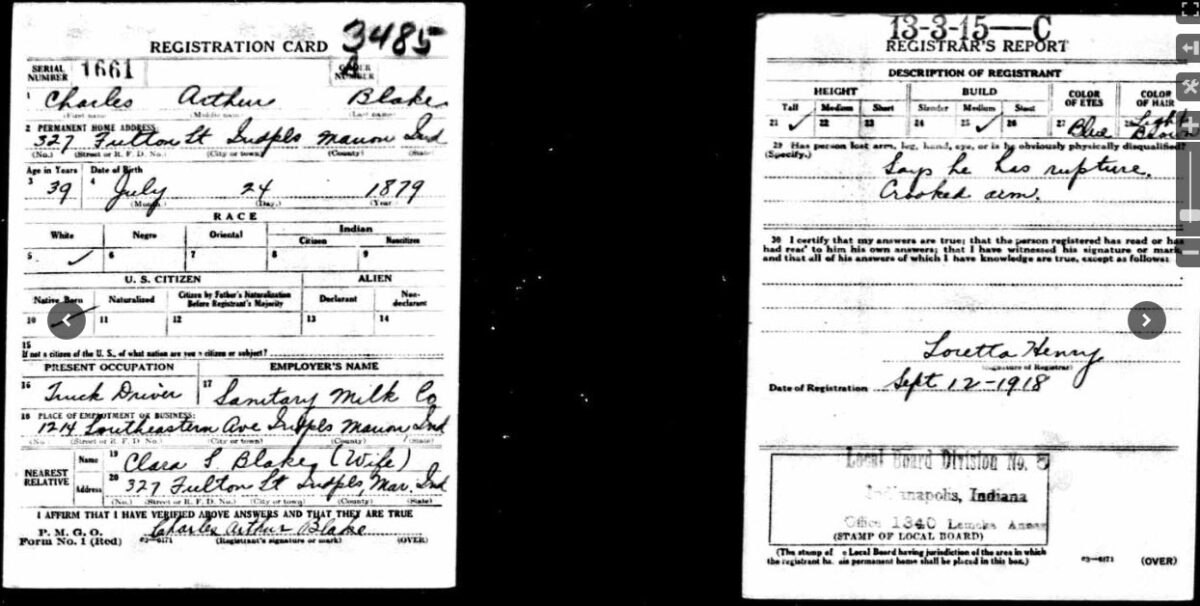 REGISTRATION CARD 3485
SERIAL NUMBER 1661 ORDER NUMBER A
1 Charles Arthur Blake
(First name) (Middle name) (Last name)
2 PERMANENT HOME ADDRESS:
327 Fulton St Indpls Marion Ind
(No.) (Street or R. F. D. No.) (City or town) (County) (State)
Age in Years Date of Birth
3 39 4 July 24 1879
(Month.) (Day.) (Year.)
RACE
White Negro Oriental Indian
Citizen Noncitizen
5 ✓ 6 7 8 9
U. S. CITIZEN ALIEN
Native Born Naturalized Citizen by Father's Naturalization Before Registrant's Majority Declarant Non-declarant
10 11 12 13 14
15
If not a citizen of the U. S., of what nation are you a citizen or subject?
PRESENT OCCUPATION EMPLOYER'S NAME
16 Truck Driver 17 Sanitary Milk Co
18 PLACE OF EMPLOYMENT OR BUSINESS:
1214 Southeastern Ave Indpls Marion Ind
(No.) (Street or R. F. D. No.) (City or town) (County) (State)
NEAREST RELATIVE
Name 19 Clara S. Blake (Wife)
Address 20 327 Fulton St Indpls Mar. Ind
(No.) (Street or R. F. D. No.) (City or town) (County) (State)
I AFFIRM THAT I HAVE VERIFIED ABOVE ANSWERS AND THAT THEY ARE TRUE
P. M. G. O.
Form No. 1 (Red) 03—6171 Charles Arthur Blake
(Registrant's signature or mark) (OVER)
13-3-15—C
REGISTRAR'S REPORT
DESCRIPTION OF REGISTRANT
HEIGHT BUILD COLOR OF EYES COLOR OF HAIR
Tall Medium Short Slender Medium Stout
21 ✓ 22 23 24 25 ✓ 26 27 Blue 28 Light Brown
29 Has person lost arm, leg, hand, eye, or is he obviously physically disqualified?
(Specify.)
Says he has rupture.
Crooked arm.
30 I certify that my answers are true; that the person registered has read or has
had read to him his own answers; that I have witnessed his signature or mark,
and that all of his answers of which I have knowledge are true, except as follows:
Loretta Henry
(Signature of Registrar)
Date of Registration Sept 12-1918
Local Board Division No. 8
Indianapolis, Indiana
Office 1340 Lemcke Annex
(STAMP OF LOCAL BOARD)
(The stamp of e Local Board having jurisdiction of the area in which
the registrant ha. ais permanent home shall be placed in this box.)
03—6171 (OVER)